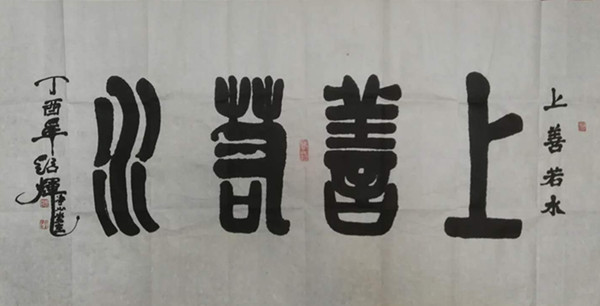 上善若水
上善若水
丁酉年绍辉